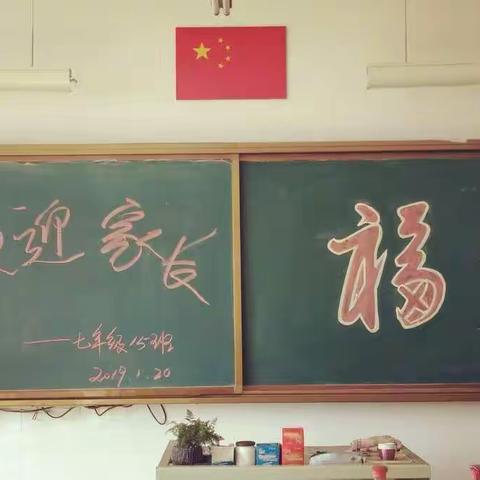 迎家长
——七年级15班
2019.1.20
福